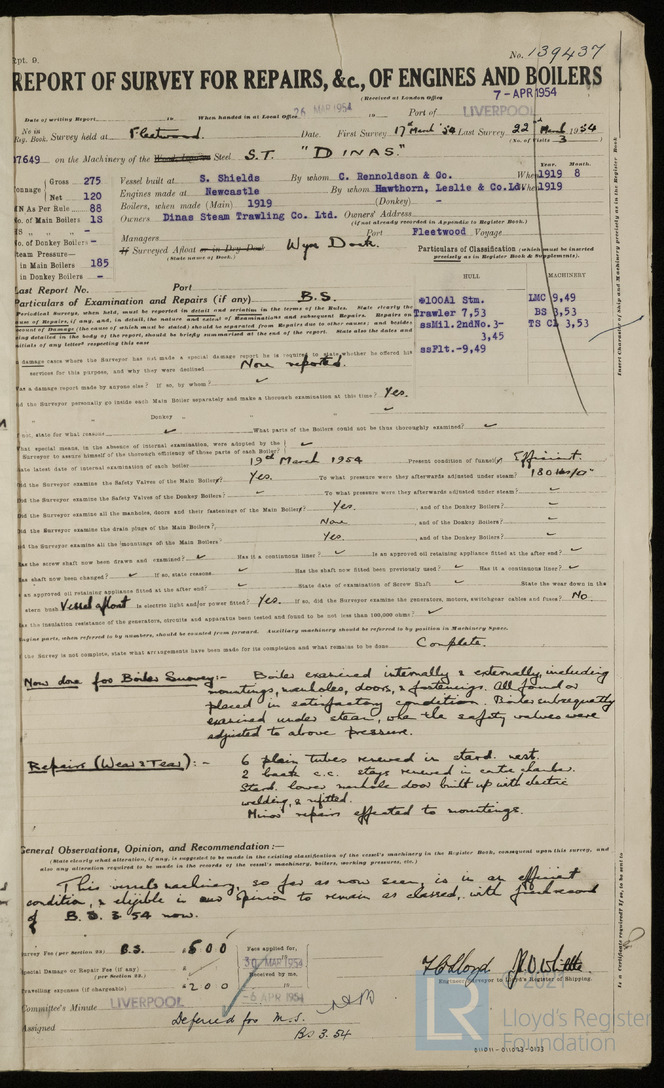 Rpt. 9.
No. 139437
REPORT OF SURVEY FOR REPAIRS, &c., OF ENGINES AND BOILERS
(Received at London Office 7 - APR 1954
Date of writing Report in When handed in at Local Office 26 MAR 1954 to Port of LIVERPOOL
No in Reg. Book. Survey held at Fleetwood. Date. First Survey 17th March '54 Last Survey 22nd March 1954
(No. of Visits 3
37649 on the Machinery of the Steel S.T. "DINAS."
Tonnage Gross 275 Vessel built at S. Shields By whom C. Rennoldson & Co. When 1919 8
Year. Month.
Net 120 Engines made at Newcastle By whom Hawthorn, Leslie & Co. Ld When 1919
NN As Per Rule 88 Boilers, when made (Main) 1919 (Donkey) -
No. of Main Boilers 1S Owners Dinas Steam Trawling Co. Ltd. Owners' Address
(if not already recorded in Appendix to Register Book.)
No. of Donkey Boilers - Managers Port Fleetwood Voyage
Steam Pressure-
in Main Boilers 185 If Surveyed Afloat or in Dry Dock Wyre Dock.
(State name of Dock.)
in Donkey Boilers -
Particulars of Classification (which must be inserted precisely as in Register Book & Supplements).
HULL MACHINERY
+100A1 Stm. LMC 9,49
Trawler 7,53 BS 3,53
ssMil.2ndNo.3- TS CL 3,53
3,45
ssFlt.-9,49
Last Report No. Port
Particulars of Examination and Repairs (if any) B.S.
Periodical Surveys, when held, must be reported in detail and seriatim in the terms of the Rules. State clearly the
cause of Repairs, if any, and, in detail, the nature and extent of Examinations and subsequent Repairs. Repairs on
account of Damage (the cause of which must be stated) should be separated from Repairs due to other causes; and besides
being detailed in the body of the report, should be briefly summarised at the end of the report. State also the dates and
initials of any letters respecting this case
In damage cases where the Surveyor has not made a special damage report he is required to state whether he offered his
services for this purpose, and why they were declined None reported.
Was a damage report made by anyone else? If so, by whom? ✓
Did the Surveyor personally go inside each Main Boiler separately and make a thorough examination at this time? Yes.
Donkey " " " ✓
If not, state for what reasons ✓ What parts of the Boilers could not be thus thoroughly examined? ✓
What special means, in the absence of internal examination, were adopted by the
Surveyor to assure himself of the thorough efficiency of those parts of each Boiler? ✓
State latest date of internal examination of each boiler 19th March 1954 Present condition of funnel(s) Efficient.
Did the Surveyor examine the Safety Valves of the Main Boiler? Yes. To what pressure were they afterwards adjusted under steam? 180 lbs/□"
Did the Surveyor examine the Safety Valves of the Donkey Boilers? ✓ To what pressure were they afterwards adjusted under steam? ✓
Did the Surveyor examine all the manholes, doors and their fastenings of the Main Boilers? Yes. , and of the Donkey Boilers? ✓
Did the Surveyor examine the drain plugs of the Main Boilers? None , and of the Donkey Boilers? ✓
Did the Surveyor examine all the mountings of the Main Boilers? Yes. , and of the Donkey Boilers? ✓
Has the screw shaft now been drawn and examined? ✓ Has it a continuous liner? ✓ Is an approved oil retaining appliance fitted at the after end? ✓
Has shaft now been changed? ✓ If so, state reasons ✓ Has the shaft now fitted been previously used? ✓ Has it a continuous liner? ✓
Is an approved oil retaining appliance fitted at the after end? ✓ State date of examination of Screw Shaft ✓ State the wear down in the
stern bush Vessel afloat Is electric light and/or power fitted? Yes. If so, did the Surveyor examine the generators, motors, switchgear cables and fuses? No
Has the insulation resistance of the generators, circuits and apparatus been tested and found to be not less than 100,000 ohms? ✓
Engine parts, when referred to by numbers, should be counted from forward. Auxiliary machinery should be referred to by position in Machinery Space.
If the Survey is not complete, state what arrangements have been made for its completion and what remains to be done Complete.
Now done for Boiler Survey:- Boiler examined internally & externally, including
mountings, manholes, doors, & fastenings. All found or
placed in satisfactory condition. Boiler subsequently
examined under steam, when the safety valves were
adjusted to above pressure.
Repairs (Wear & Tear):- 6 plain tubes renewed in stard. nest.
2 back c.c. stays renewed in centre chamber.
Stard. lower manhole door built up with electric
welding, & refitted.
Minor repairs effected to mountings.
General Observations, Opinion, and Recommendation:-
(State clearly what alteration, if any, is suggested to be made in the existing classification of the vessel's machinery in the Register Book, consequent upon this survey, and
also any alteration required to be made in the records of the vessel's machinery, boilers, working pressures, etc.)
This vessels machinery, so far as now seen, is in an efficient
condition, & eligible in our opinion to remain as classed, with fresh record
of B.S. 3.54 now.
Survey Fee (per Section 29) B.S. £ 5 0 0 Fees applied for, 30 MAR 1954
Special Damage or Repair Fee (if any) (per Section 29.) £
Received by me,
Travelling expenses (if chargeable) £ 2 0 0 -6 APR 1954
Engineer Surveyor to Lloyd's Register of Shipping.
Committee's Minute LIVERPOOL
Assigned Deferred for M.S.
BS 3.54
Insert Character of Ship and Machinery precisely as in the Register Book
Is a Certificate required? If so, to be sent to
© 2021
LR
Lloyd's Register
Foundation
011011-011023-0133